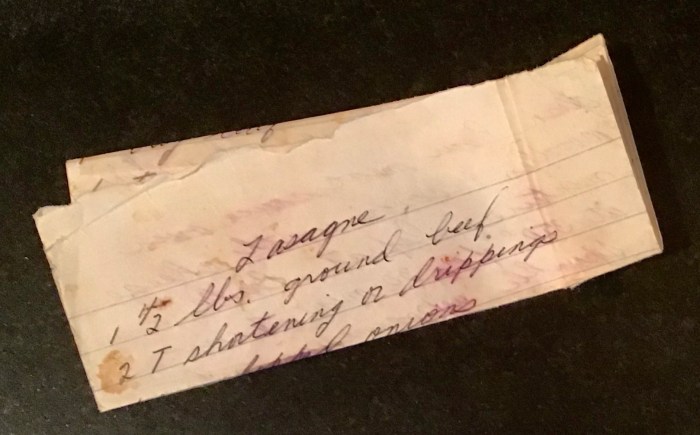 Lasagne
1 1/2 lbs. ground beef
2 T shortening or drippings
onions